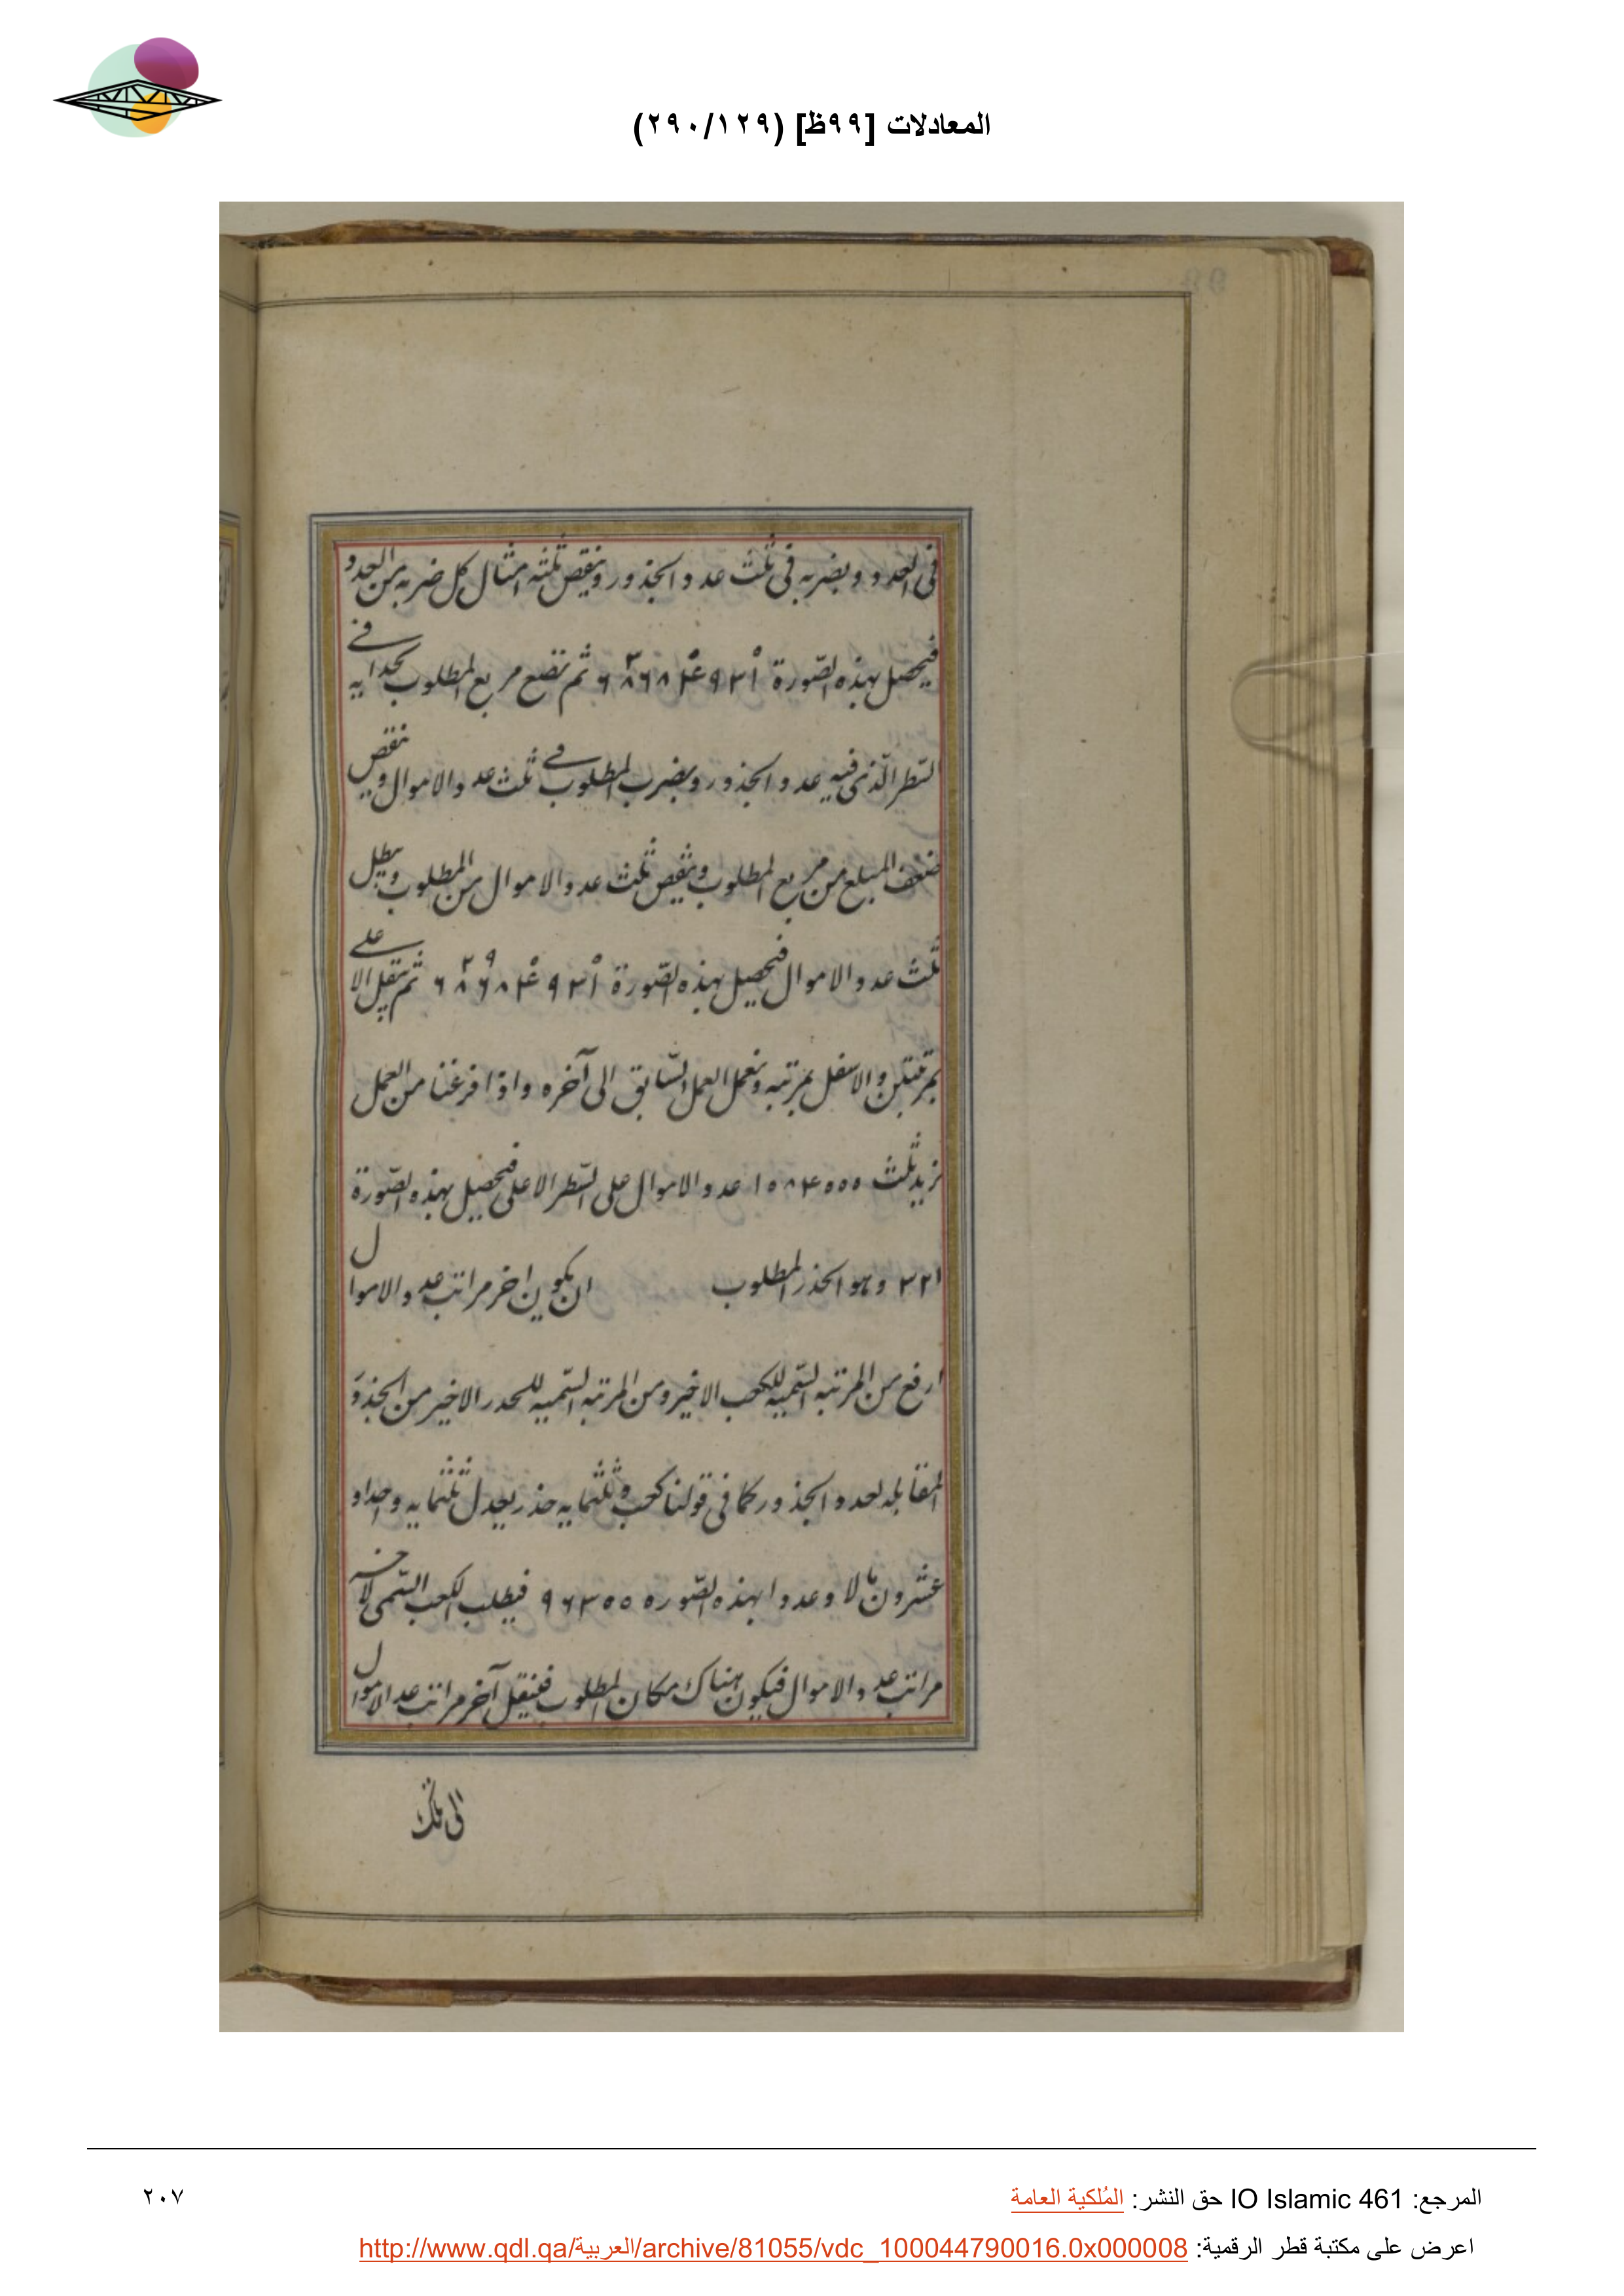 المعادلات [٩٩ظ] (٢٩٠/١٢٩)
فى العدد ويضربه فى ثلث عدد الجذور وينقص ثلثه امثال كل ضربه من العدد
فيحصل بهذه الصّورة ثم نضع مربع المطلوب بحذايه فى
السّطر الّذى فيه عدد الجذور ويضرب المطلوب فى ثلث عدد الاموال وينقص
ضعف المبلغ من مربع المطلوب وينقص ثلث عدد الاموال من المطلوب ويبطل
ثلث عدد الاموال فيحصل بهذه الصّورة ثم ينقل الاعلى
بمرتبتين والاسفل بمرتبه ونعمل العمل السّابق الى آخره واذا فرغنا من العمل
نزيد ثلث عدد الاموال على السّطر الاعلى فيحصل بهذه الصّورة
٣٢١ وهو الجذر المطلوب ان يكون اخر مراتب عدد الاموال
ارفع من المرتبه السّميه للكعب الاخير ومن المرتبه السّميه للجذر الاخير من الجذور
المقابله لعدد الجذور كما فى قولنا كعب وثلثمايه جذر يعدل ثلثمايه واحدا و
عشرون مالا وعددا بهذه الصّوره ٩٦٣٠٠ فيطلب الكعب السّمى لاخر
مراتب عدد الاموال فيكون هناك مكان المطلوب فينقل آخر مراتب عدد الاموال
الى تلك
المرجع: IO Islamic 461 حق النشر: المُلكية العامة
٢٠٧
اعرض على مكتبة قطر الرقمية: http://www.qdl.qa/العربية/archive/81055/vdc_100044790016.0x000008